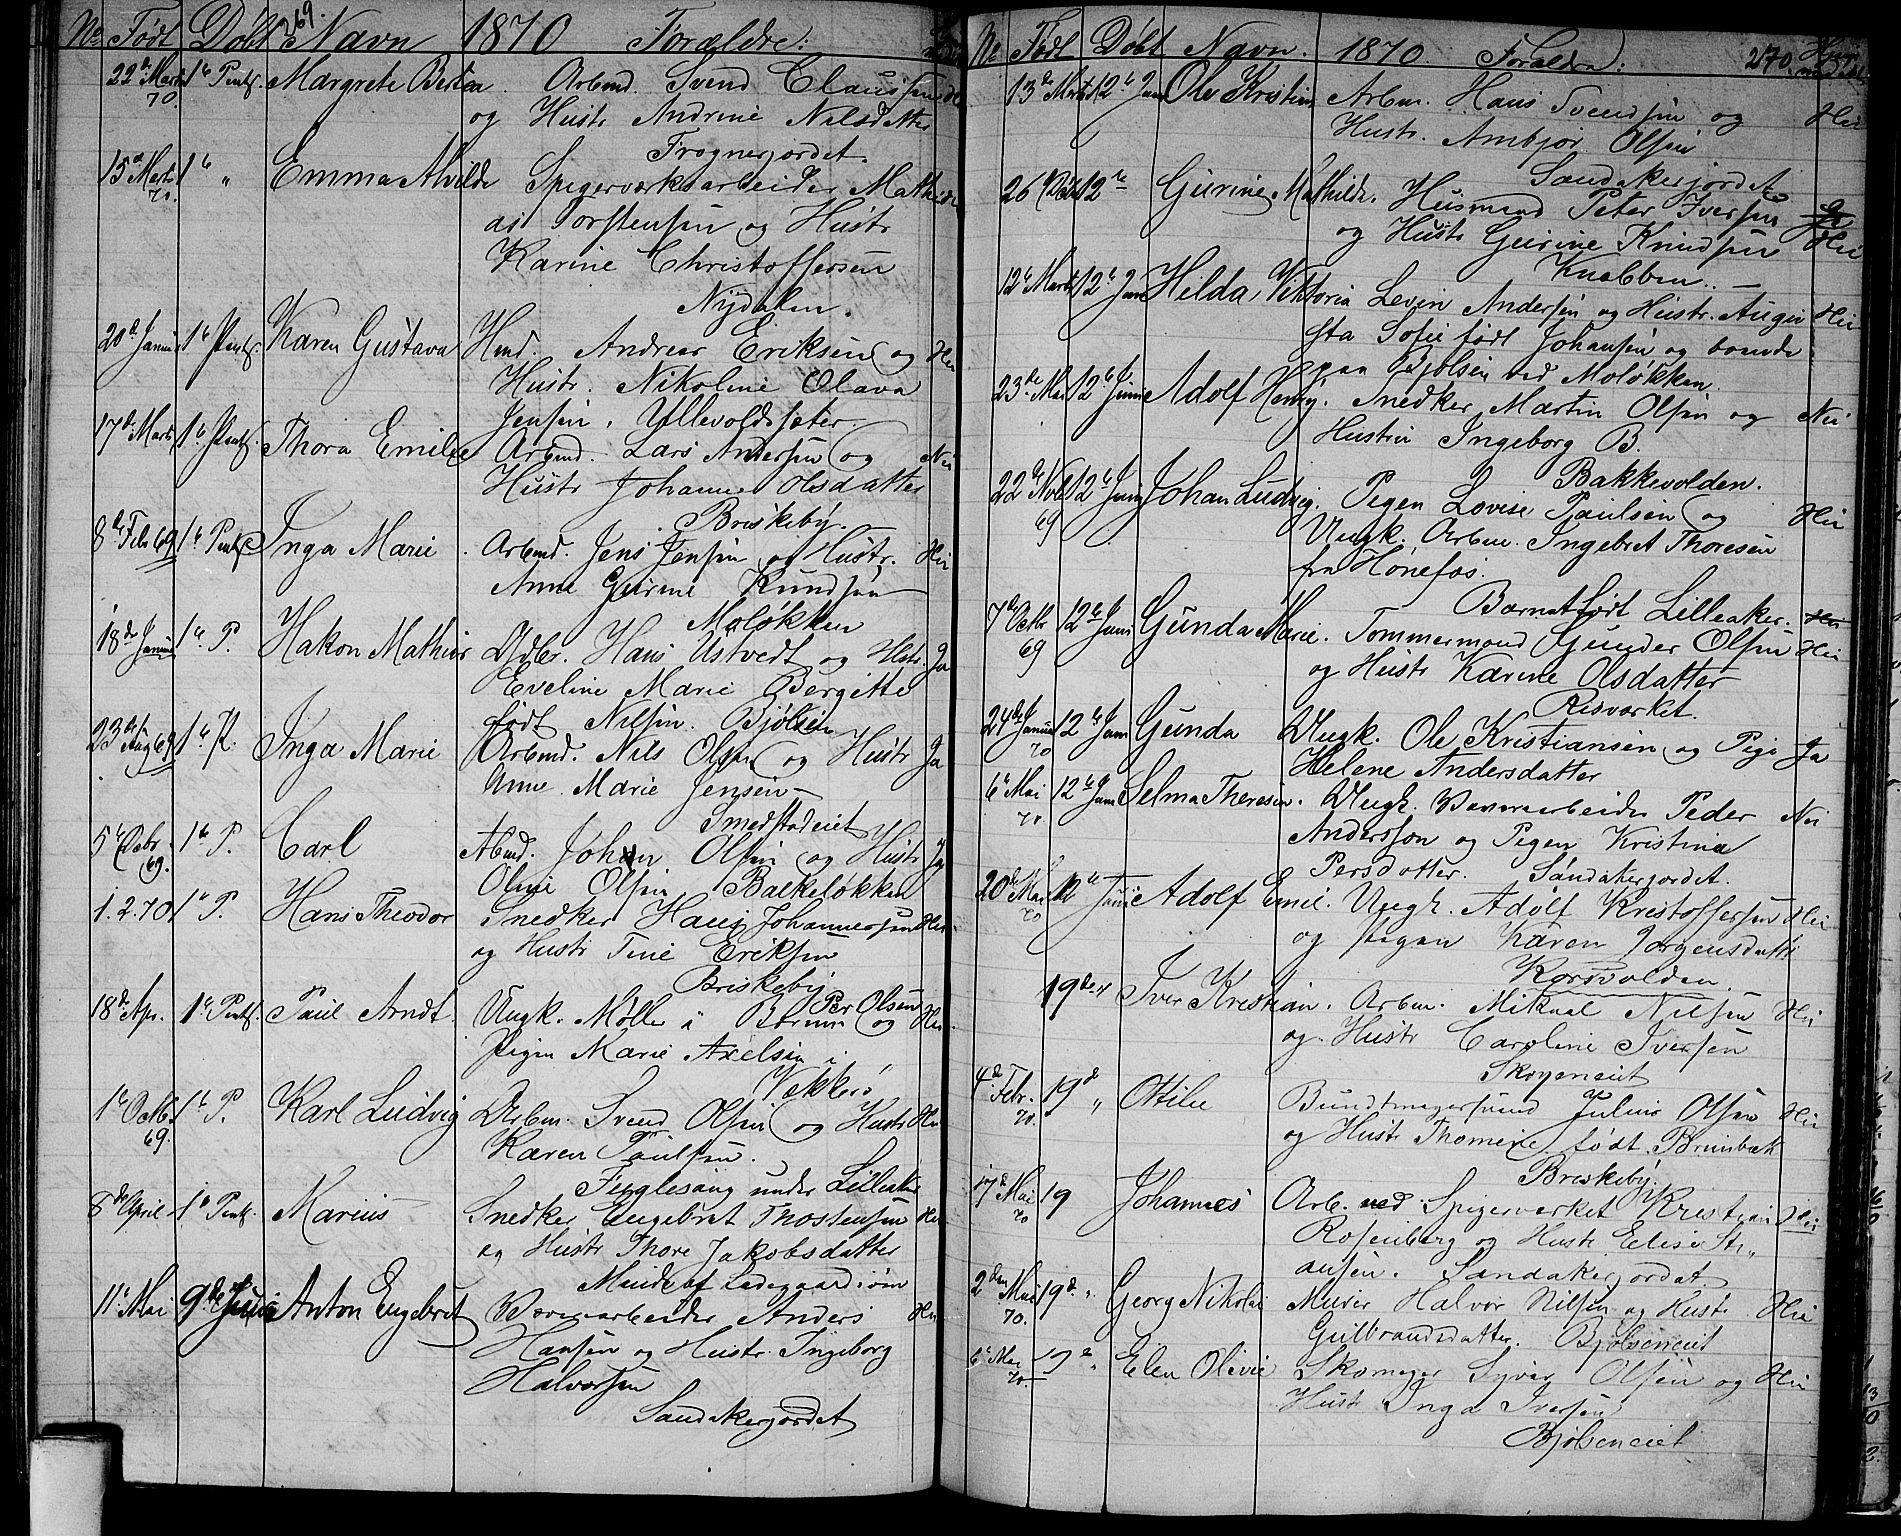 No Født Døbt 269. Navn 1870 Forældre:
22de Marts 70 1ste Pintsd. Margrete Bertea. Arbmd. Svend Claussen
og Hustr Andrine Nilsdatter
Frognerjordet.
15de Marts 70. 1ste " Emma Alvilde Spigerværksarbeider Mathi
as Torstensen og Hustr
Karine Christoffersen
Nydalen.
20de Januar 1ste Pintsd. Karen Gustava Hmd. Andreas Eriksen og Hei
Hustr. Nikoline Olava
Jensen. Ullevoldsæter.
17de Marts 1ste Pintsd. Thora Emilie Arbmd. Lars Andersen og Nei
Hustr Johanne Olsdatter
Briskeby.
8de Feb 69 1ste Pintsd Inga Marie. Arbmd. Jens Jensen og Hustr. Hei
Anne Gurine Knudsen
Moløkken
18de Januar 1ste P. Hakon Mathias Hdlr. Hans Ustvedt og Hstr. Ja
Eveline Marie Bergitte
født Nilsen. Bjølsen
23de Aug 69 1ste P. Inga Marie Arbmd. Nils Olsen og Hustr Ja
Anne Marie Jensen
Smedstadeiet
5te Octbr. 69. 1ste P. Carl Abmd. Johan Olsen og Hustr Ja
Oline Olsen Bakkeløkken
1.2.70 1ste P. Hans Theodor Snedker Hans Johannessen Hei
og Hustr Tine Eriksen
Briskeby
18de Apr. 1ste Pintsd. Paul Arndt. Ungk. Møller i Bærum Per Olsen og Hei.
Pigen Marie Axelsen i
Vækkerø
1ste Octb. 69. 1ste P. Karl Ludvig Arbm. Svend Olsen og Hustr Hei
Karen Paulsen.
Fuglesang under Lilleaker
8de April 1ste Pintsd. Marius Snedker Engebret Thostensen Hei
og Hustr Thore Jakobsdatter
Ladegaardsøen
11te Mai 9de Juni Anton Engebret Væverarbeider Anders Hei
Hansen og Hustr. Ingeborg
Halvorsen
Sandakerjordet
No Født Døbt Navn. 1870. Forældre: 270.
13de Marts 12te Juni Ole Kristian Arbm. Hans Svendsen og Hei
Hustr. Ambjør Olsen
Sandakerjordet
26 Octbr 12te Gurine Mathilde. Husmand Peter Iversen Hei
og Hustr Gurine Knudsen
Knabben.
12te Marts 12te Juni Hilda Viktoria Levin Andersen og Hustr. Augu Hei
sta Sofie født Johansen og boende
paa Bjølsen ved Moløkken.
23de Mai 12te Juni Adolf Henry. Snedker Martin Olsen og Nei
Hustru Ingeborg B.
Bakkevolden.
22de Nvb 69 12te Juni Johan Ludvig. Pigen Lovise Paulsen og Hei
Ungk. Arbm. Ingebret Thoresen
fra Hønefos.
Barnet født Lilleaker.
7de Octbr 69 12te Juni Gunda Marie. Tømmermand Gunder Olsen Hei
og Hustr Karine Olsdatter
Risværket.
24de Januar 70 12te Juni Gunda Ungk. Ole Kristiansen og Pige Ja
Helene Andersdatter
6te Mai 70 12te Juni Selma Theresia. Ungk. Væverarbeider Peder Nei
Andersson og Pigen Kristina
Persdotter. Sandakerjordet.
20de Mai 70 12te Juni Adolf Emil. Ungk. Adolf Kristoffersen Hei
og Pigen Karen Jørgensdatter
Korsvolden.
19de " Iver Kristian. Arbm. Mikael Nilsen Hei
og Hustr Caroline Iversen
Skøyeneiet
4de Febr. 70. 19de " Ottilie Bundtmagersvend Julius Olsen Hei
og Hustr Thomine født Brunbæk
Briskeby.
17de Mai 70 19 Johannes Arb. ved Spigerværket Kristian Hei
Rosenberg og Hustr Elise
ansen. Sandakerjordet
2den Mai 70. 19de " Georg Nikolai Murer Halvor Nilsen og Hustr Hei
Gulbrandsdatter. Bjølseneiet
6te Mai 70. 19de " Elen Olivie Skomager Syver Olsen og Hei
Hustr Inga Iversen
Bjølseneiet